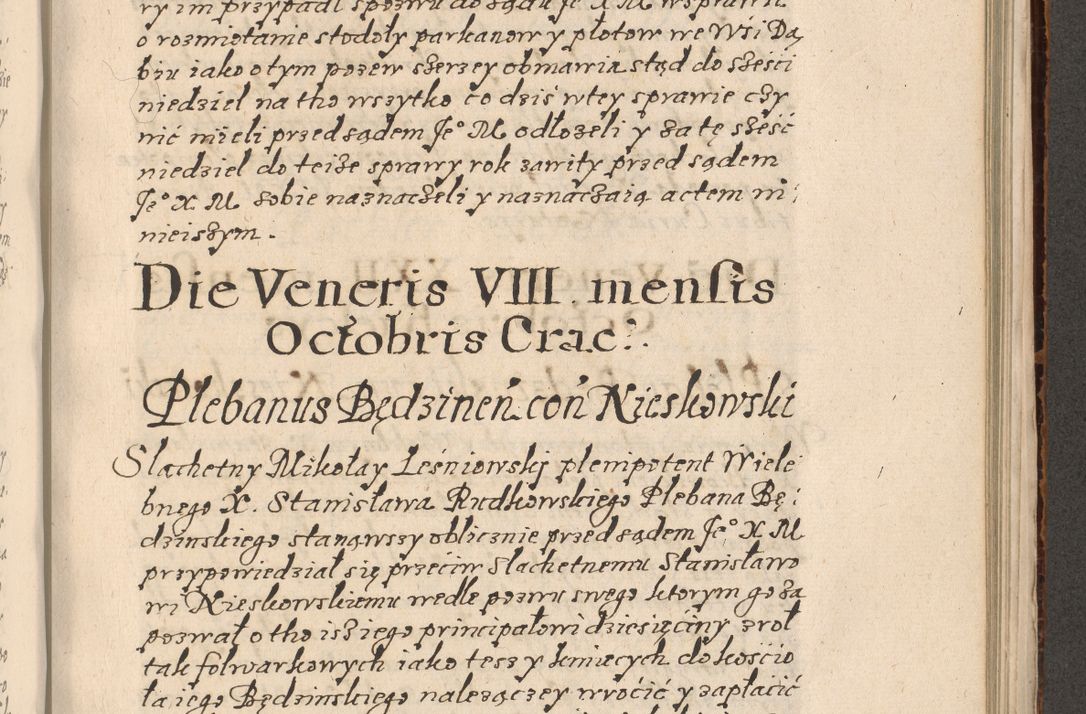 ry im przypadł spozwu do sądu Je X M wsprawie
o rozmiotanie stodoły parkanow y płotow we Wśi Dą
biu iako o tym pozew szerzey obmawia stąd do sześci
niedziel na tho wszytko co dziś wtey sprawie czy
nić mieli przed sądem Je° M odłożeli y za tę sześć
niedziel do teize sprawy rok zawity przed sądem
Je° X M sobie naznaczeli y naznaczaią actem ni:
nieiszym.
Die Veneris VIII mensis
Octobris Crac:
Plebanus Będzinen con Nieskowski
Slachetny Mikołay Leśniowskj plenipotent Wiele
bnego X. Stanisława Rudkowskiego Plebana Bę:
dzinskiego stanąwszy oblicznie przed sądem Je° X M
przypowiedział się przeciw Slachetnemu Stanisławo
wi Nieskowskiemu wedle pozwu swego ktorym go za
pozwał o tho isz iego principałowi dziesięciny z rol
tak folwarkowych iako tesz y kmiecych do kościo
ła iego Będzinskiego należączey wroćić y zapłaćić